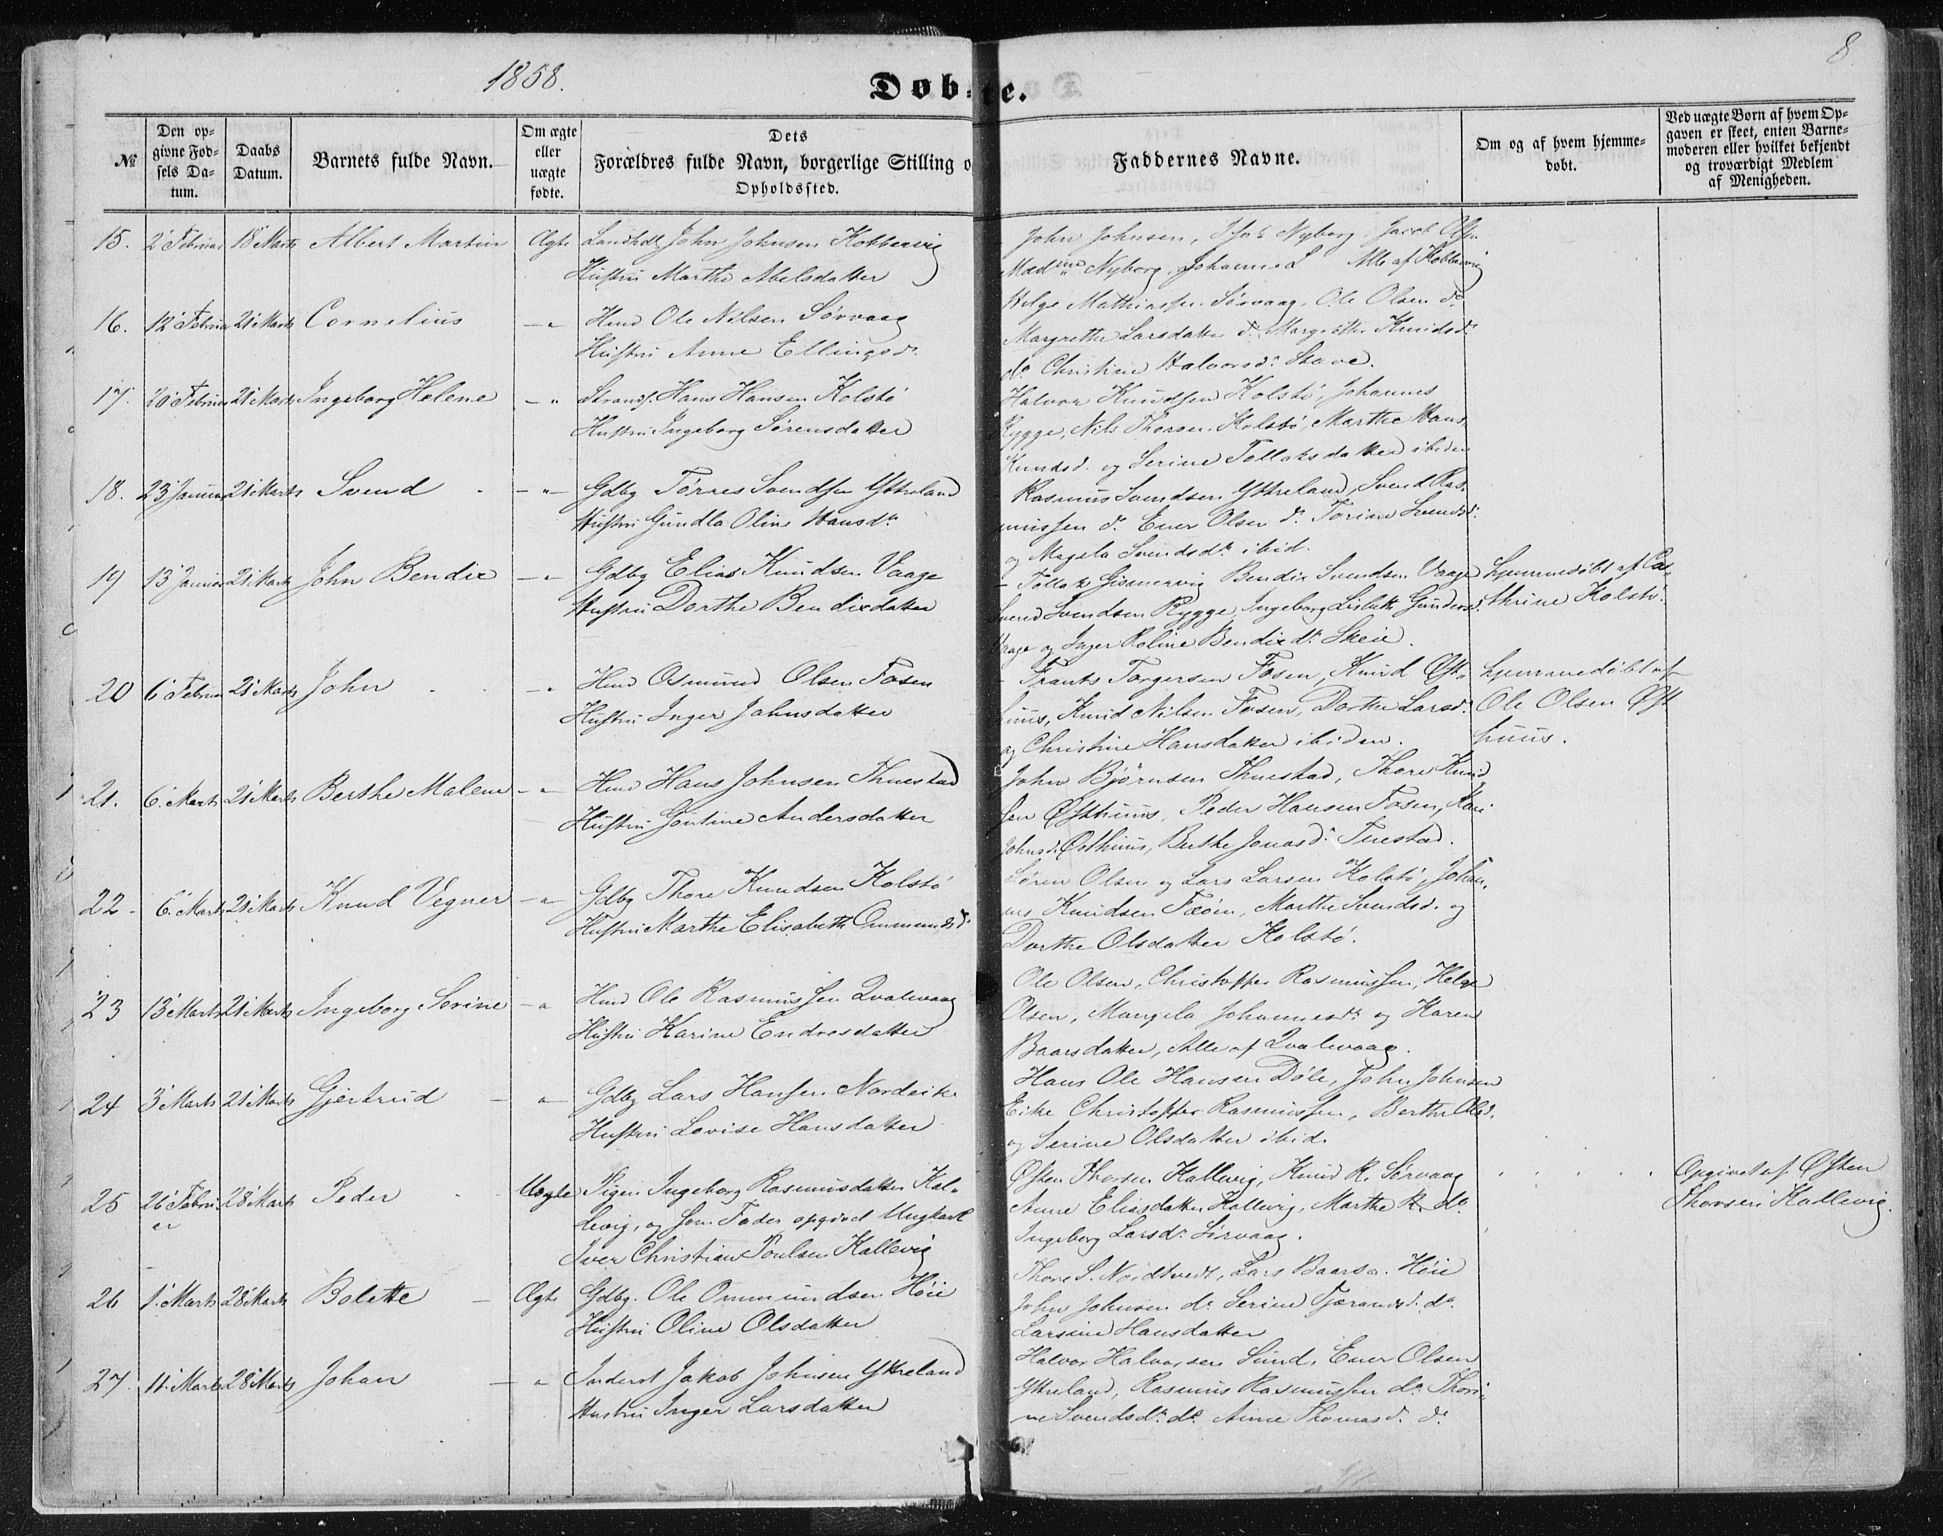 1858.
8
Døb-te.
№
Den opgivne Fødsels Datum.
Daabs Datum.
Barnets fulde Navn.
Om ægte eller uægte fødte.
Dets Forældres fulde Navn, borgerlige Stilling o Opholdssted.
Faddernes Navne.
Om og af hvem hjemmedøbt.
Ved uægte Børn af hvem Opgaven er skeet, enten Barnemoderen eller hvilket bekjendt og troværdigt Medlem af Menigheden.
15. 2' Februar 18' Marts Albert Martin Ægte Landhdl. John Johnsen Kobbervig
Hustru Marthe Abelsdatter
John Johnsen, Nyborg, Jacob Olsen
Mad^me Nyborg, Johanne L Alle af Kobbervig
16. 12' Februar 21' Marts Cornelius -"- Hmd Ole Nilsen Sørvaag
Hustru Anne Ellingsd^r
Helge Mathiassen Sørvaag, Ole Olsen d^o
Margrethe Larsdatter d^o Margrethe Knudsd^r
d^o Christine Halvorsd^r Stave.
17. 20' Februar 21' Marts Ingeborg Helene -"- Strands. Hans Hansen Kolstø
Hustru Ingeborg Sørensdatter
Halvor Knudsen Kolstø, Johannes
Rygge, Nils Thorsen Kolstø, Marthe Hans
Knudsd. og Serine Tollaksdatter ibidem
18. 23' Januar 21' Marts Svend -"- Gdbg Tørres Svendsen Yttreland
Hustru Gundla Oline Hansd^r
Rasmus Svendsen Yttreland, Svend Ras-
mussen d^o Ener Olsen d^o Torine Svendsd^r
og Magela Svendsd^r ibid.
19 13' Januar 21' Marts John Bendix -"- Gdbg Elias Knudsen Vaage
Hustru Dorthe Bendixdatter
Tollak Gismervig Bendix Svendsen Vaage
Svend Svendsen Rygge, Ingeborg Lisbeth Gundersd.
Vaage og Inger Roline Bendixd^r Skeie.
hjemmedøbt af Ca-
thrine Kolstø.
20 6' Februar 21' Marts John -"- Hmd Osmund Olsen Fosen
Hustru Inger Johnsdatter
Frants Torgersen Fosen, Knud Øst-
huus, Knud Nilsen Fosen, Dorthe Larsd.
og Christine Hansdatter ibidem.
hjemmedøbt af
Ole Olsen Øst
huus.
21. 6' Marts 21' Marts Berthe Malene -"- Hmd Hans Johnsen Thuestad
Hustru Gontine Andersdatter
John Bjørnsen Thuestad, Thore Knud
sen Østhuus, Peder Hansen Fosen, Kari
Johnsd. Østhuus, Berthe Jonasd^r Tuestad.
22. 6' Marts 21' Marts Knud Vegner -"- Gdbg Thore Knudsen Kolstø
Hustru Marthe Elisabeth Ommundsd^r
Søren Olsen og Lars Larsen Kolstø, Johan-
nes Knudsen Fæøen, Marthe Svendsd. og
Dorthe Olsdatter Kolstø.
23 13' Marts 21' Marts Ingeborg Serine -"- Hmd Ole Rasmussen Qvalevaag
Hustru Karine Endresdatter
Ole Olsen, Christopher Rasmussen, Helge
Olsen, Mangela Johannesd^r og Karen
Baarsdatter, Alle af Qvalevaag.
24 3' Marts 21' Marts Gjertrud -"- Gdbg Lars Hansen Nordeike
Hustru Lovise Hansdatter
Hans Ole Hansen Døle, John Johnsen
Eike Christopher Rasmussen, Berthe Olsd.
og Serine Olsdatter ibid.
25 26' Febru- 28' Marts Peder Uægte Pigen Ingeborg Rasmusdatter Kal-
er
levig, og som Fader opgivet Ungkarl
Iver Christian Poulsen Kallevig
Østen Thorsen Kallevig, Knud R. Sørvaag
Anne Eliasdatter Kallevig, Marthe R. d^o
Ingeborg Larsd^r Sørvaag.
Opgivet af Østen
Thorsen Kallevig.
26 1' Marts 28' Marts Bolette - Ægte Gdbg. Ole Ommundsen Høie
Hustru Oline Olsdatter
Thore S. Nordtvedt, Lars Baarsn. Høie
John Johnsen d^o Serine Tjerandsd. d^o
Larsine Hansdatter
27. 11. Marts 28' Marts Johan -"- Inderst Jakob Johnsen Yttreland
Hustru Inger Larsdatter
Halvor Halvorsen Sund, Ener Olsen
Yttreland, Rasmus Rasmussen d^o Thori-
ne Svendsd^r d^o Anne Thomasd^r d^o